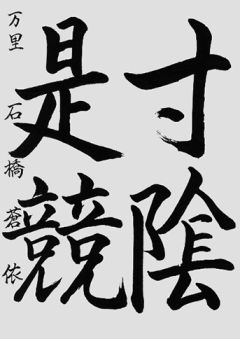 寸陰
是競
万里 石橋蒼依